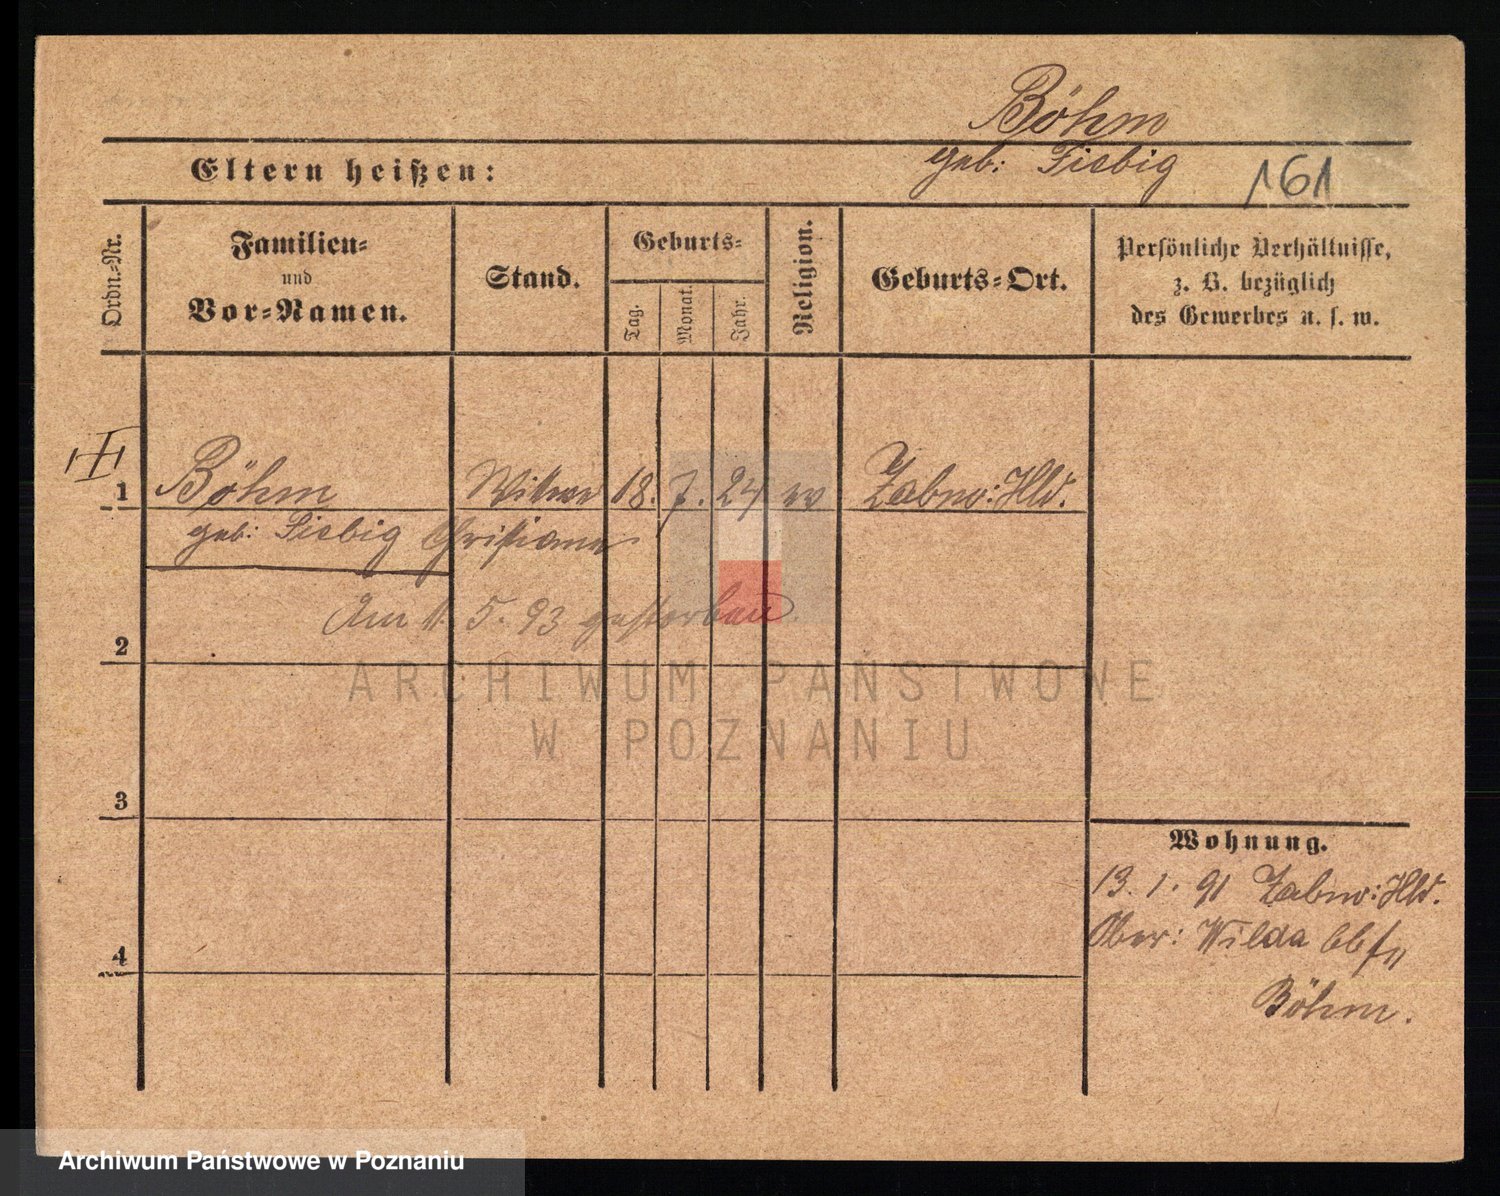 Böhm
geb: Fiebig
161
Eltern heißen:
Ordn.-Nr.
Familien-
und
Vor-Namen.
Stand.
Geburts-
Tag.
Monat.
Jahr.
Religion.
Geburts-Ort.
Persönliche Verhältnisse,
z. B. bezüglich
des Gewerbes u. s. w.
1 Böhm Witwe 18. 7. 24 ev Zabno: Hld.
geb: Fiebig Christiane
Am 11. 5. 93 gestorben
2
ARCHIWUM PAŃSTWOWE
W POZNANIU
3
Wohnung.
13. 1. 91 Zabno: Hld.
Ober: Wilda
4
Böhm.
Archiwum Państwowe w Poznaniu